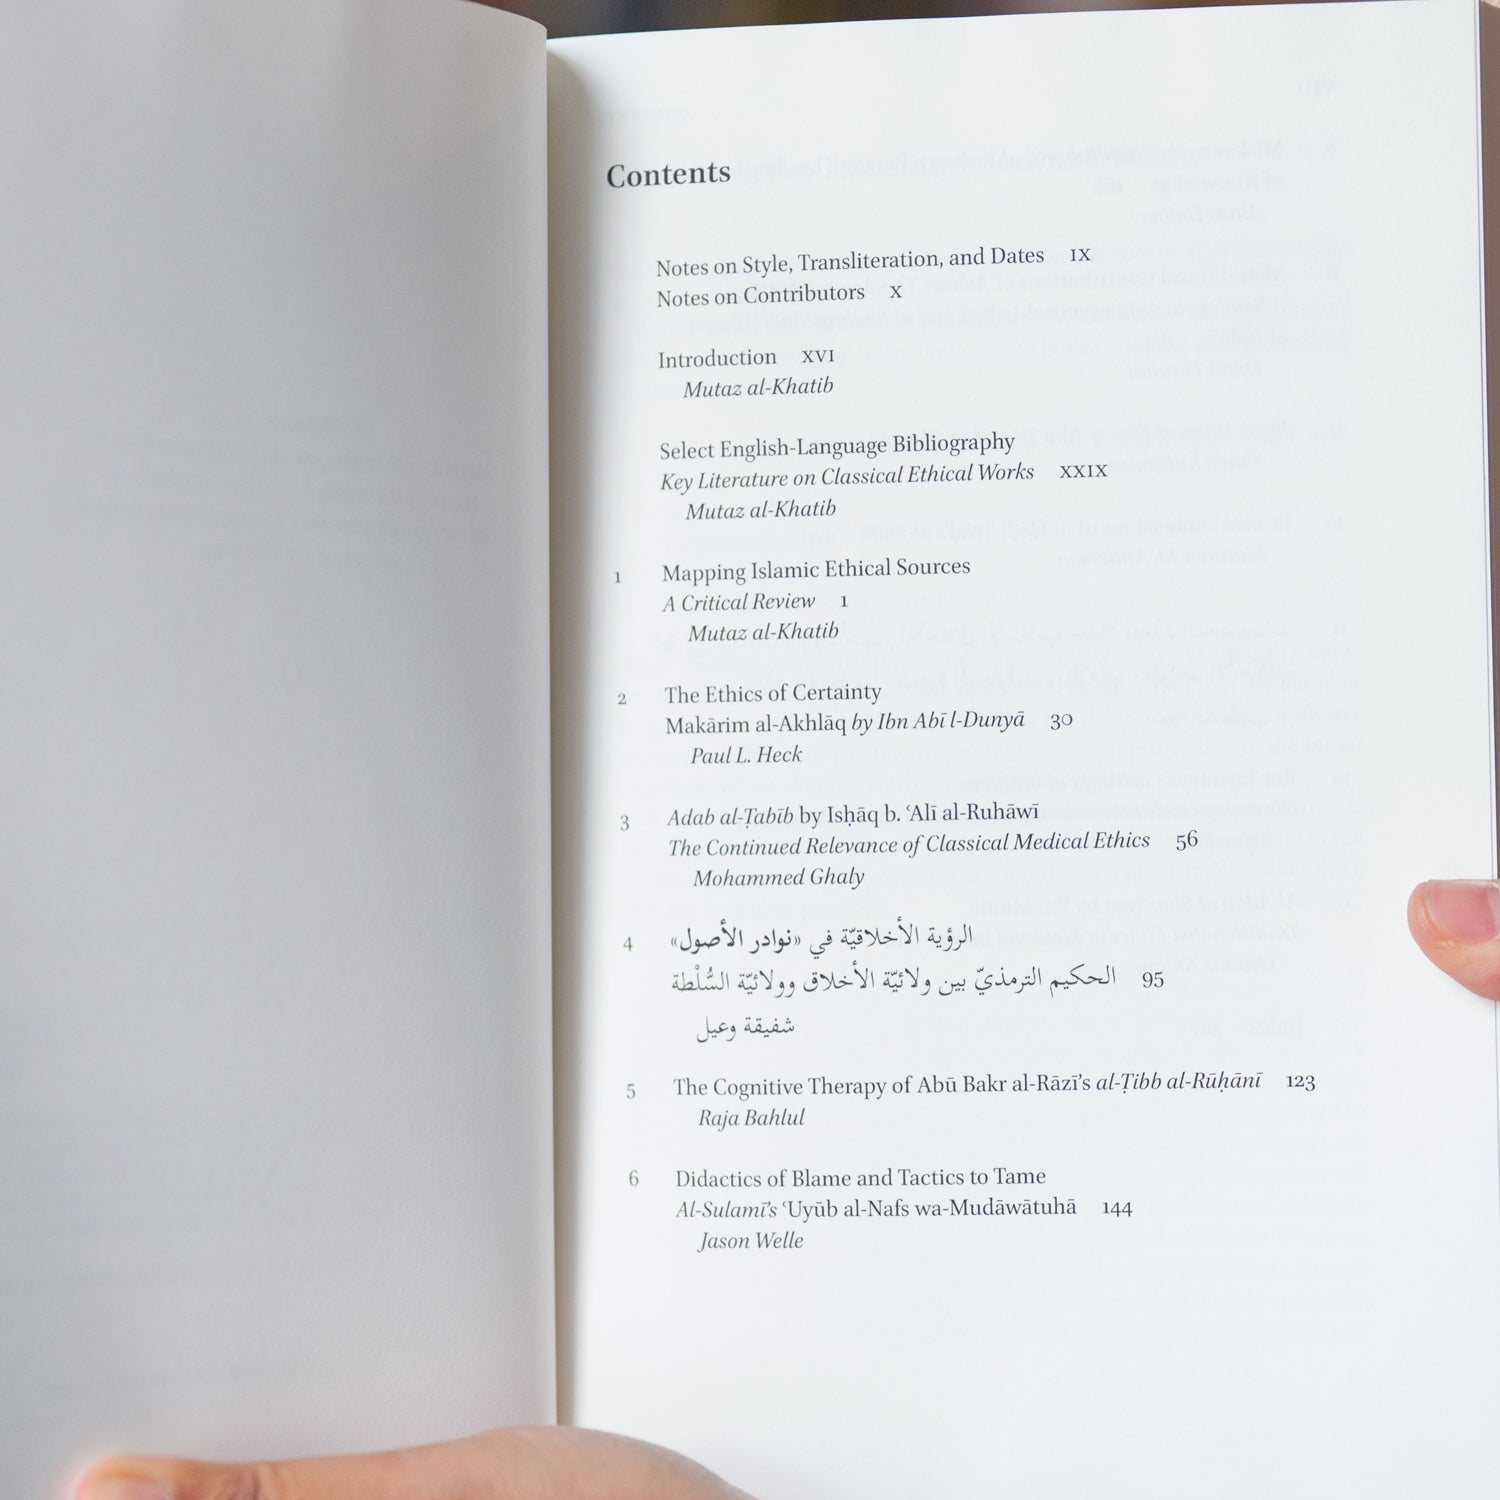 Contents
Notes on Style, Transliteration, and Dates IX
Notes on Contributors X
Introduction XVI
Mutaz al-Khatib
Select English-Language Bibliography
Key Literature on Classical Ethical Works XXIX
Mutaz al-Khatib
1 Mapping Islamic Ethical Sources
A Critical Review 1
Mutaz al-Khatib
2 The Ethics of Certainty
Makārim al-Akhlāq by Ibn Abī l-Dunyā 30
Paul L. Heck
3 Adab al-Ṭabīb by Isḥāq b. ʿAlī al-Ruhāwī
The Continued Relevance of Classical Medical Ethics 56
Mohammed Ghaly
4 الرؤية الأخلاقيّة في «نوادر الأصول»
الحكيم الترمذيّ بين ولائيّة الأخلاق وولائيّة السُّلْطة 95
شفيقة وعيل
5 The Cognitive Therapy of Abū Bakr al-Rāzī's al-Ṭibb al-Rūḥānī 123
Raja Bahlul
6 Didactics of Blame and Tactics to Tame
Al-Sulamī's ʿUyūb al-Nafs wa-Mudāwātuhā 144
Jason Welle